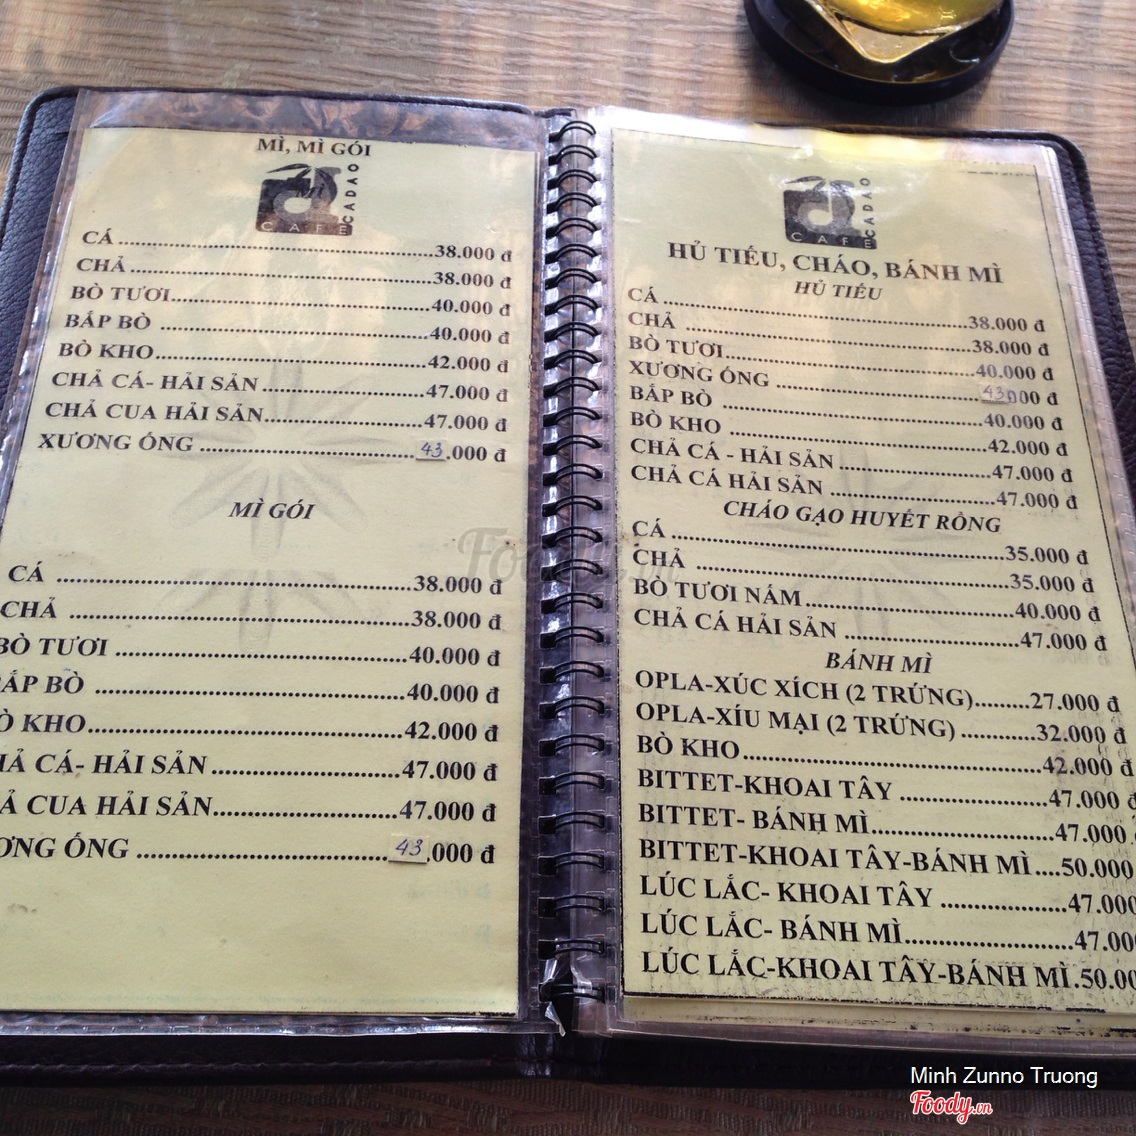 MÌ, MÌ GÓI
CADAO
CAFÉ
CÁ ........ 38.000 đ
CHẢ ........ 38.000 đ
BÒ TƯƠI ........ 40.000 đ
BẮP BÒ ........ 40.000 đ
BÒ KHO ........ 42.000 đ
CHẢ CÁ- HẢI SẢN ........ 47.000 đ
CHẢ CUA HẢI SẢN ........ 47.000 đ
XƯƠNG ỐNG ........ 43.000 đ
MÌ GÓI
CÁ ........ 38.000 đ
CHẢ ........ 38.000 đ
BÒ TƯƠI ........ 40.000 đ
ẮP BÒ ........ 40.000 đ
Ò KHO ........ 42.000 đ
HẢ CÁ- HẢI SẢN ........ 47.000 đ
Ả CUA HẢI SẢN ........ 47.000 đ
ƠNG ỐNG ........ 43.000 đ
CADAO
CAFÉ
HỦ TIẾU, CHÁO, BÁNH MÌ
HỦ TIẾU
CÁ ........ 38.000 đ
CHẢ ........ 38.000 đ
BÒ TƯƠI ........ 40.000 đ
XƯƠNG ỐNG ........ 43.000 đ
BẮP BÒ ........ 40.000 đ
BÒ KHO ........ 42.000 đ
CHẢ CÁ - HẢI SẢN ........ 47.000 đ
CHẢ CÁ HẢI SẢN ........ 47.000 đ
CHÁO GẠO HUYẾT RỒNG
CÁ ........ 35.000 đ
CHẢ ........ 35.000 đ
BÒ TƯƠI NẤM ........ 40.000 đ
CHẢ CÁ HẢI SẢN ........ 47.000 đ
BÁNH MÌ
OPLA-XÚC XÍCH (2 TRỨNG) ........ 27.000 đ
OPLA-XÍU MẠI (2 TRỨNG) ........ 32.000 đ
BÒ KHO ........ 42.000 đ
BITTET-KHOAI TÂY ........ 47.000 đ
BITTET- BÁNH MÌ ........ 47.000
BITTET-KHOAI TÂY-BÁNH MÌ .... 50.000
LÚC LẮC- KHOAI TÂY ........ 47.000
LÚC LẮC- BÁNH MÌ ........ 47.00
LÚC LẮC-KHOAI TÂY-BÁNH MÌ . 50.00
Minh Zunno Truong
Foody.vn